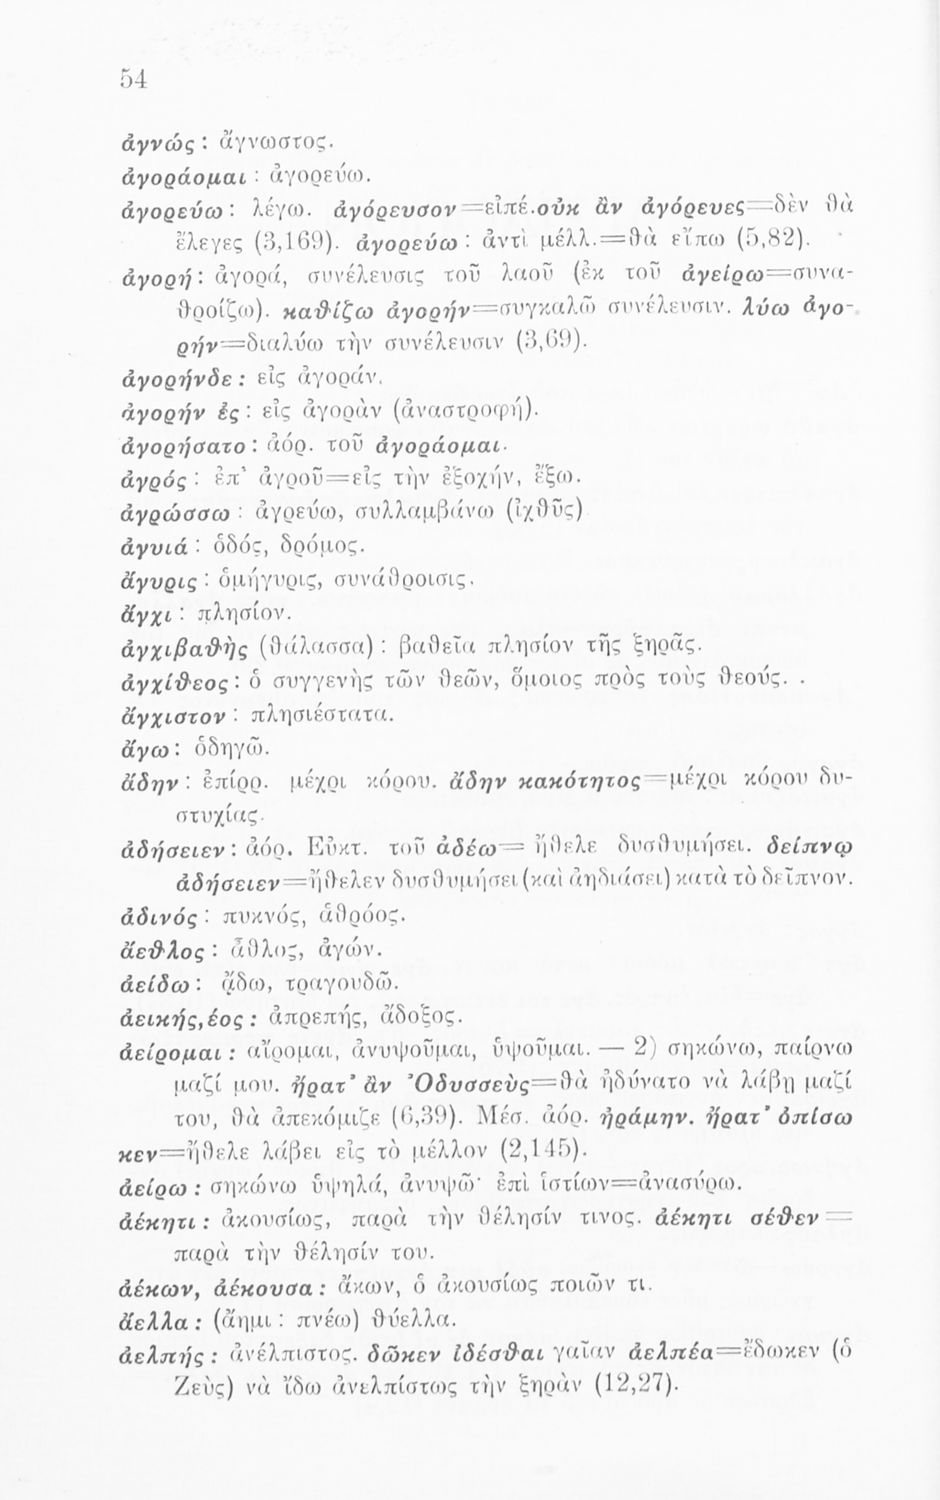 54
ἀγνώς : ἄγνωστος.
ἀγοράομαι : ἀγορεύω.
ἀγορεύω : λέγω. ἀγόρευσον=εἰπέ.οὐκ ἂν ἀγόρευες=δὲν θὰ
ἔλεγες (3,169). ἀγορεύω : ἀντὶ μέλλ.=θὰ εἴπω (5,82).
ἀγορή : ἀγορά, συνέλευσις τοῦ λαοῦ (ἐκ τοῦ ἀγείρω=συνα-
θροίζω). καθίζω ἀγορήν=συγκαλῶ συνέλευσιν. λύω ἀγο-
ρήν=διαλύω τὴν συνέλευσιν (3,69).
ἀγορήνδε : εἰς ἀγοράν.
ἀγορήν ἐς : εἰς ἀγορὰν (ἀναστροφή).
ἀγορήσατο : ἀόρ. τοῦ ἀγοράομαι.
ἀγρός : ἐπ' ἀγροῦ=εἰς τὴν ἐξοχήν, ἔξω.
ἀγρώσσω : ἀγρεύω, συλλαμβάνω (ἰχθῦς)
ἀγυιά : ὁδός, δρόμος.
ἄγυρις : ὁμήγυρις, συνάθροισις.
ἄγχι : πλησίον.
ἀγχιβαθὴς (θάλασσα) : βαθεῖα πλησίον τῆς ξηρᾶς.
ἀγχίθεος : ὁ συγγενὴς τῶν θεῶν, ὅμοιος πρὸς τοὺς θεούς.
ἄγχιστον : πλησιέστατα.
ἄγω : ὁδηγῶ.
ἄδην : ἐπίρρ. μέχρι κόρου. ἄδην κακότητος=μέχρι κόρου δυ-
στυχίας.
ἀδήσειεν : ἀόρ. Εὐκτ. τοῦ ἀδέω= ἤθελε δυσθυμήσει. δείπνῳ
ἀδήσειεν=ἤθελεν δυσθυμήσει (καὶ ἀηδιάσει) κατὰ τὸ δεῖπνον.
ἀδινός : πυκνός, ἀθρόος.
ἄεθλος : ἆθλος, ἀγών.
ἀείδω : ᾄδω, τραγουδῶ.
ἀεικής,έος : ἀπρεπής, ἄδοξος.
ἀείρομαι : αἴρομαι, ἀνυψοῦμαι, ὑψοῦμαι. — 2) σηκώνω, παίρνω
μαζί μου. ἤρατ' ἂν Ὀδυσσεὺς=θὰ ἠδύνατο νὰ λάβῃ μαζί
του, θὰ ἀπεκόμιζε (6,39). Μέσ. ἀόρ. ἠράμην. ἤρατ' ὀπίσω
κεν=ἤθελε λάβει εἰς τὸ μέλλον (2,145).
ἀείρω : σηκώνω ὑψηλά, ἀνυψῶ· ἐπὶ ἱστίων=ἀνασύρω.
ἀέκητι : ἀκουσίως, παρὰ τὴν θέλησίν τινος. ἀέκητι σέθεν =
παρὰ τὴν θέλησίν του.
ἀέκων, ἀέκουσα : ἄκων, ὁ ἀκουσίως ποιῶν τι.
ἄελλα : (ἄημι : πνέω) θύελλα.
ἀελπής : ἀνέλπιστος. δῶκεν ἰδέσθαι γαῖαν ἀελπέα=ἔδωκεν (ὁ
Ζεὺς) νὰ ἴδω ἀνελπίστως τὴν ξηρὰν (12,27).